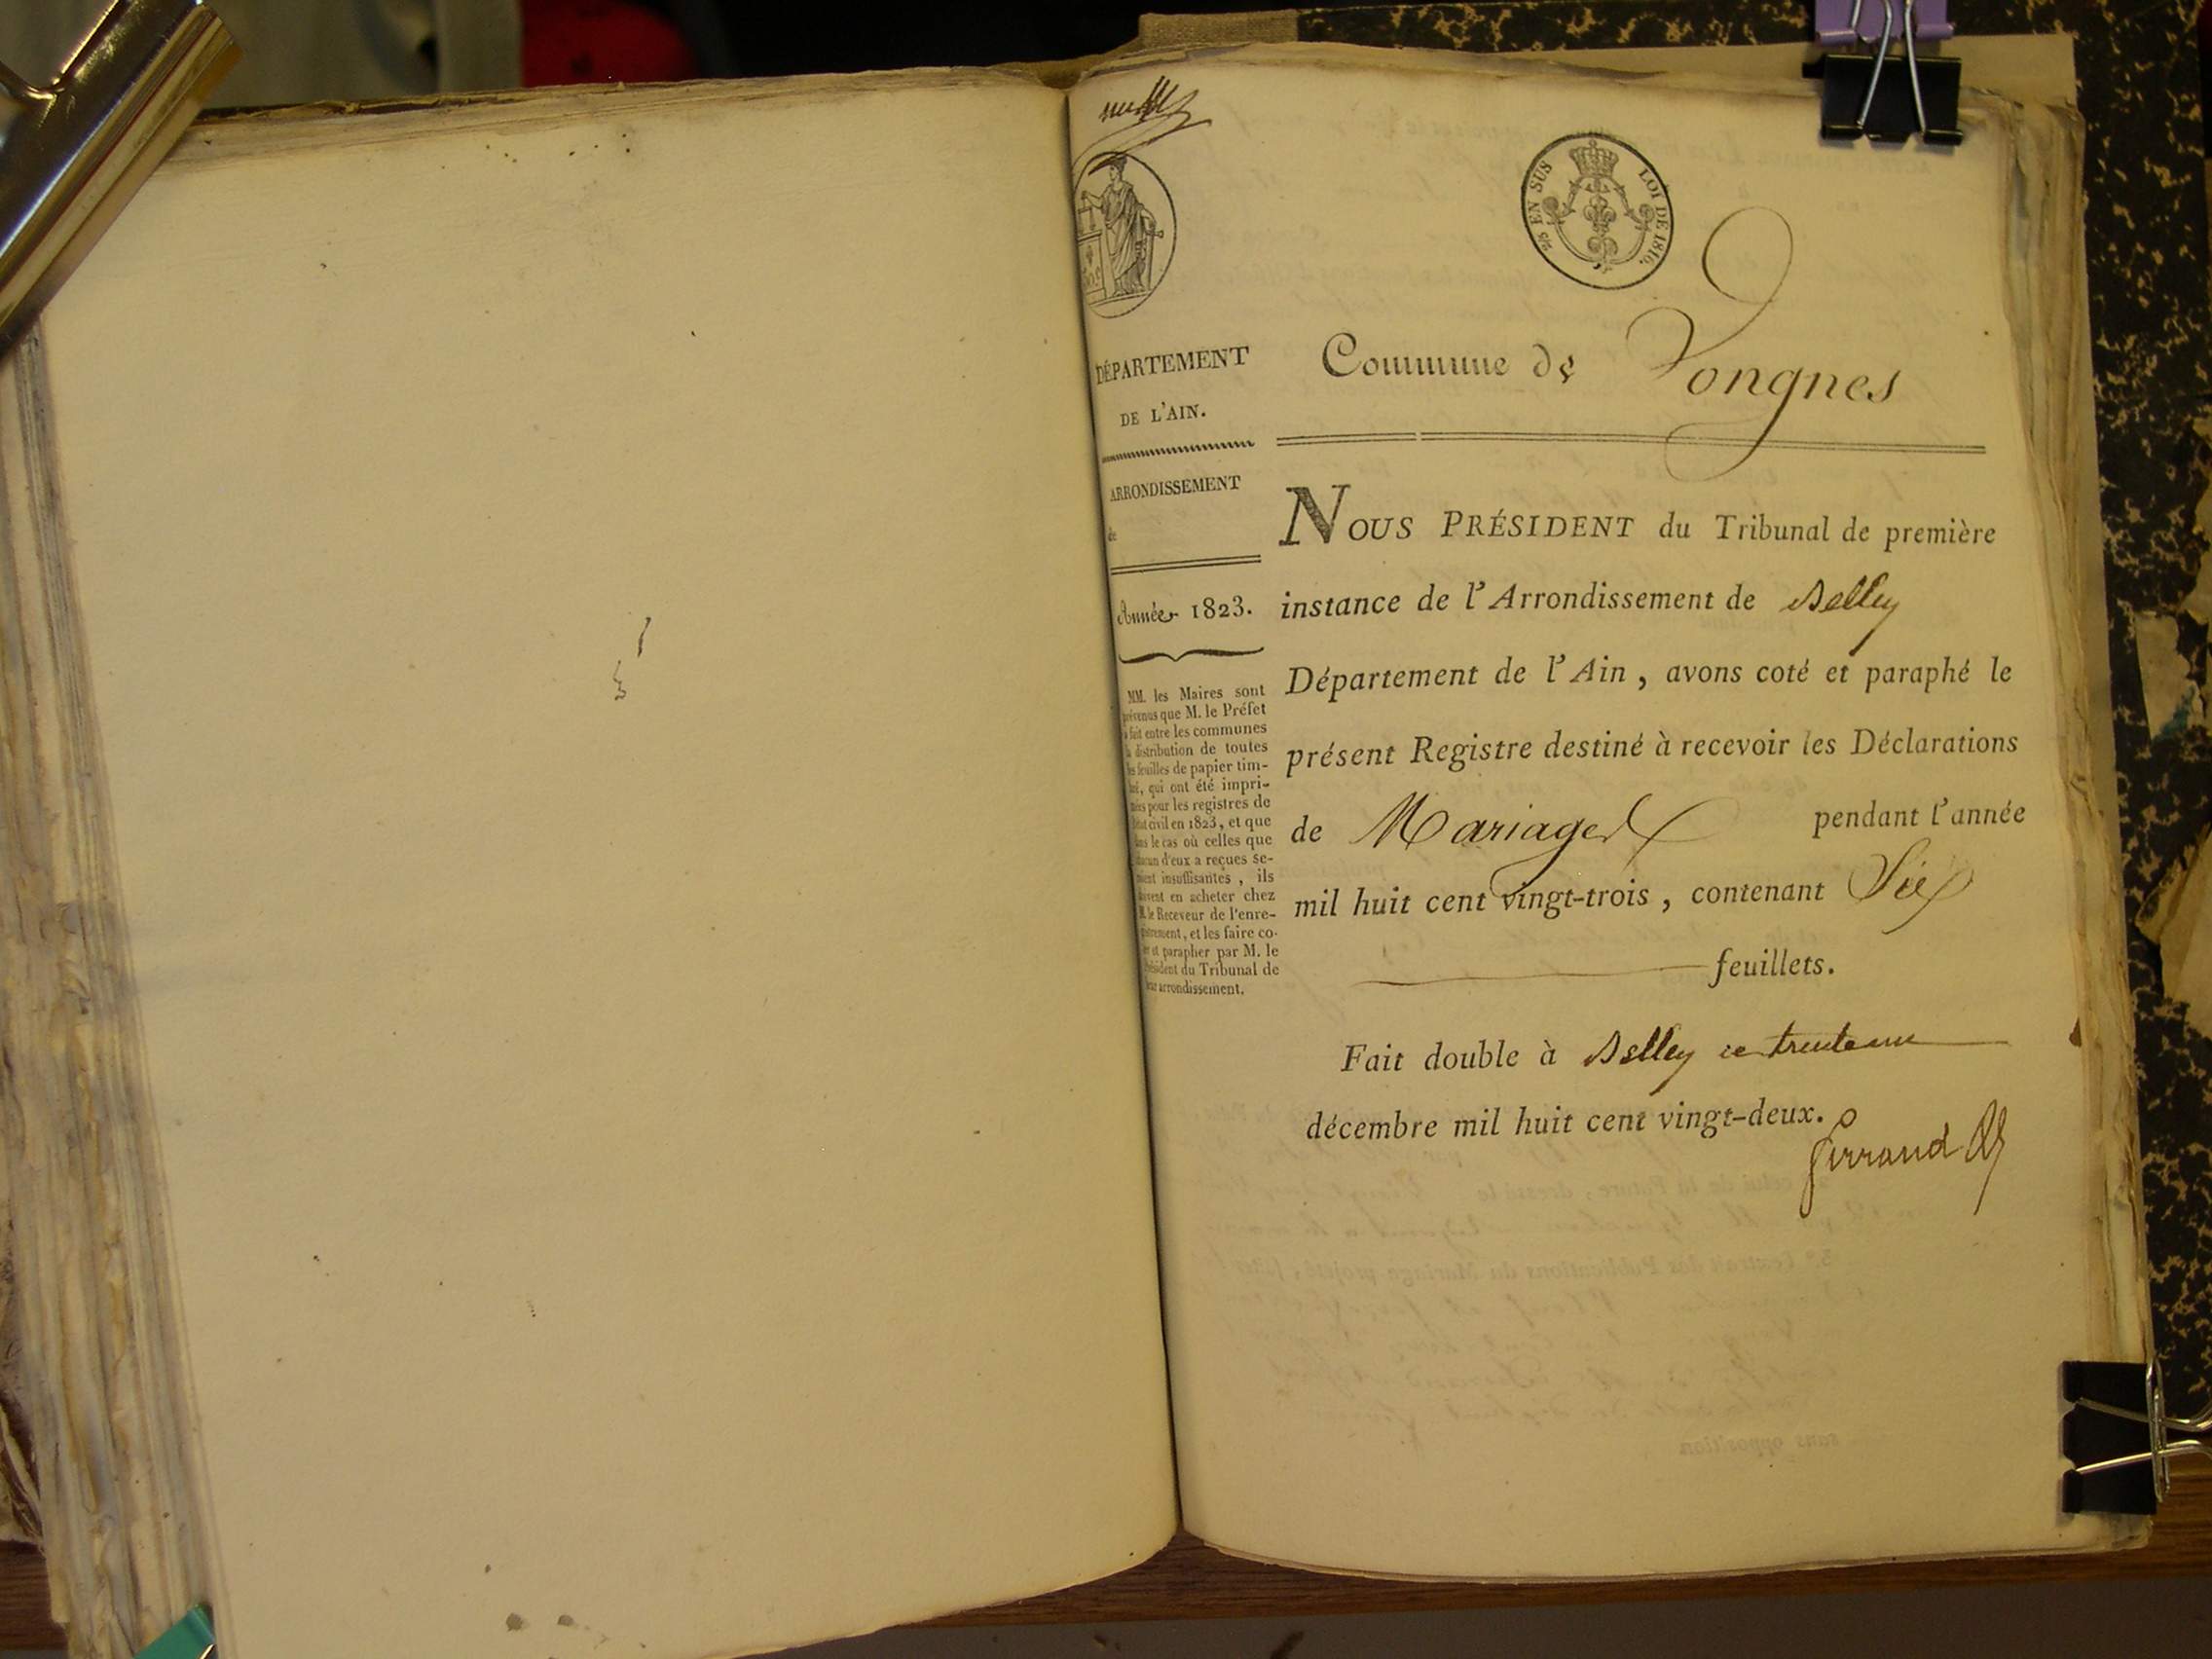 2/5 EN SUS
LOI DE 1816.
DÉPARTEMENT
DE L'AIN.
ARRONDISSEMENT
de
Année 1823.
MM. les Maires sont
prévenus que M. le Préfet
a fait entre les communes
la distribution de toutes
les feuilles de papier tim-
bré, qui ont été impri-
mées pour les registres de
l'état civil en 1823, et que
dans le cas où celles que
chacun d'eux a reçues se-
roient insuffisantes, ils
doivent en acheter chez
M. le Receveur de l'enre-
gistrement, et les faire co-
ter et parapher par M. le
Président du Tribunal de
leur arrondissement.
Commune de Vongnes
NOUS PRÉSIDENT du Tribunal de première
instance de l'Arrondissement de Belley
Département de l'Ain, avons coté et paraphé le
présent Registre destiné à recevoir les Déclarations
de Mariages pendant l'année
mil huit cent vingt-trois, contenant Six
feuillets.
Fait double à Belley ce trente un
décembre mil huit cent vingt-deux.
Girraud